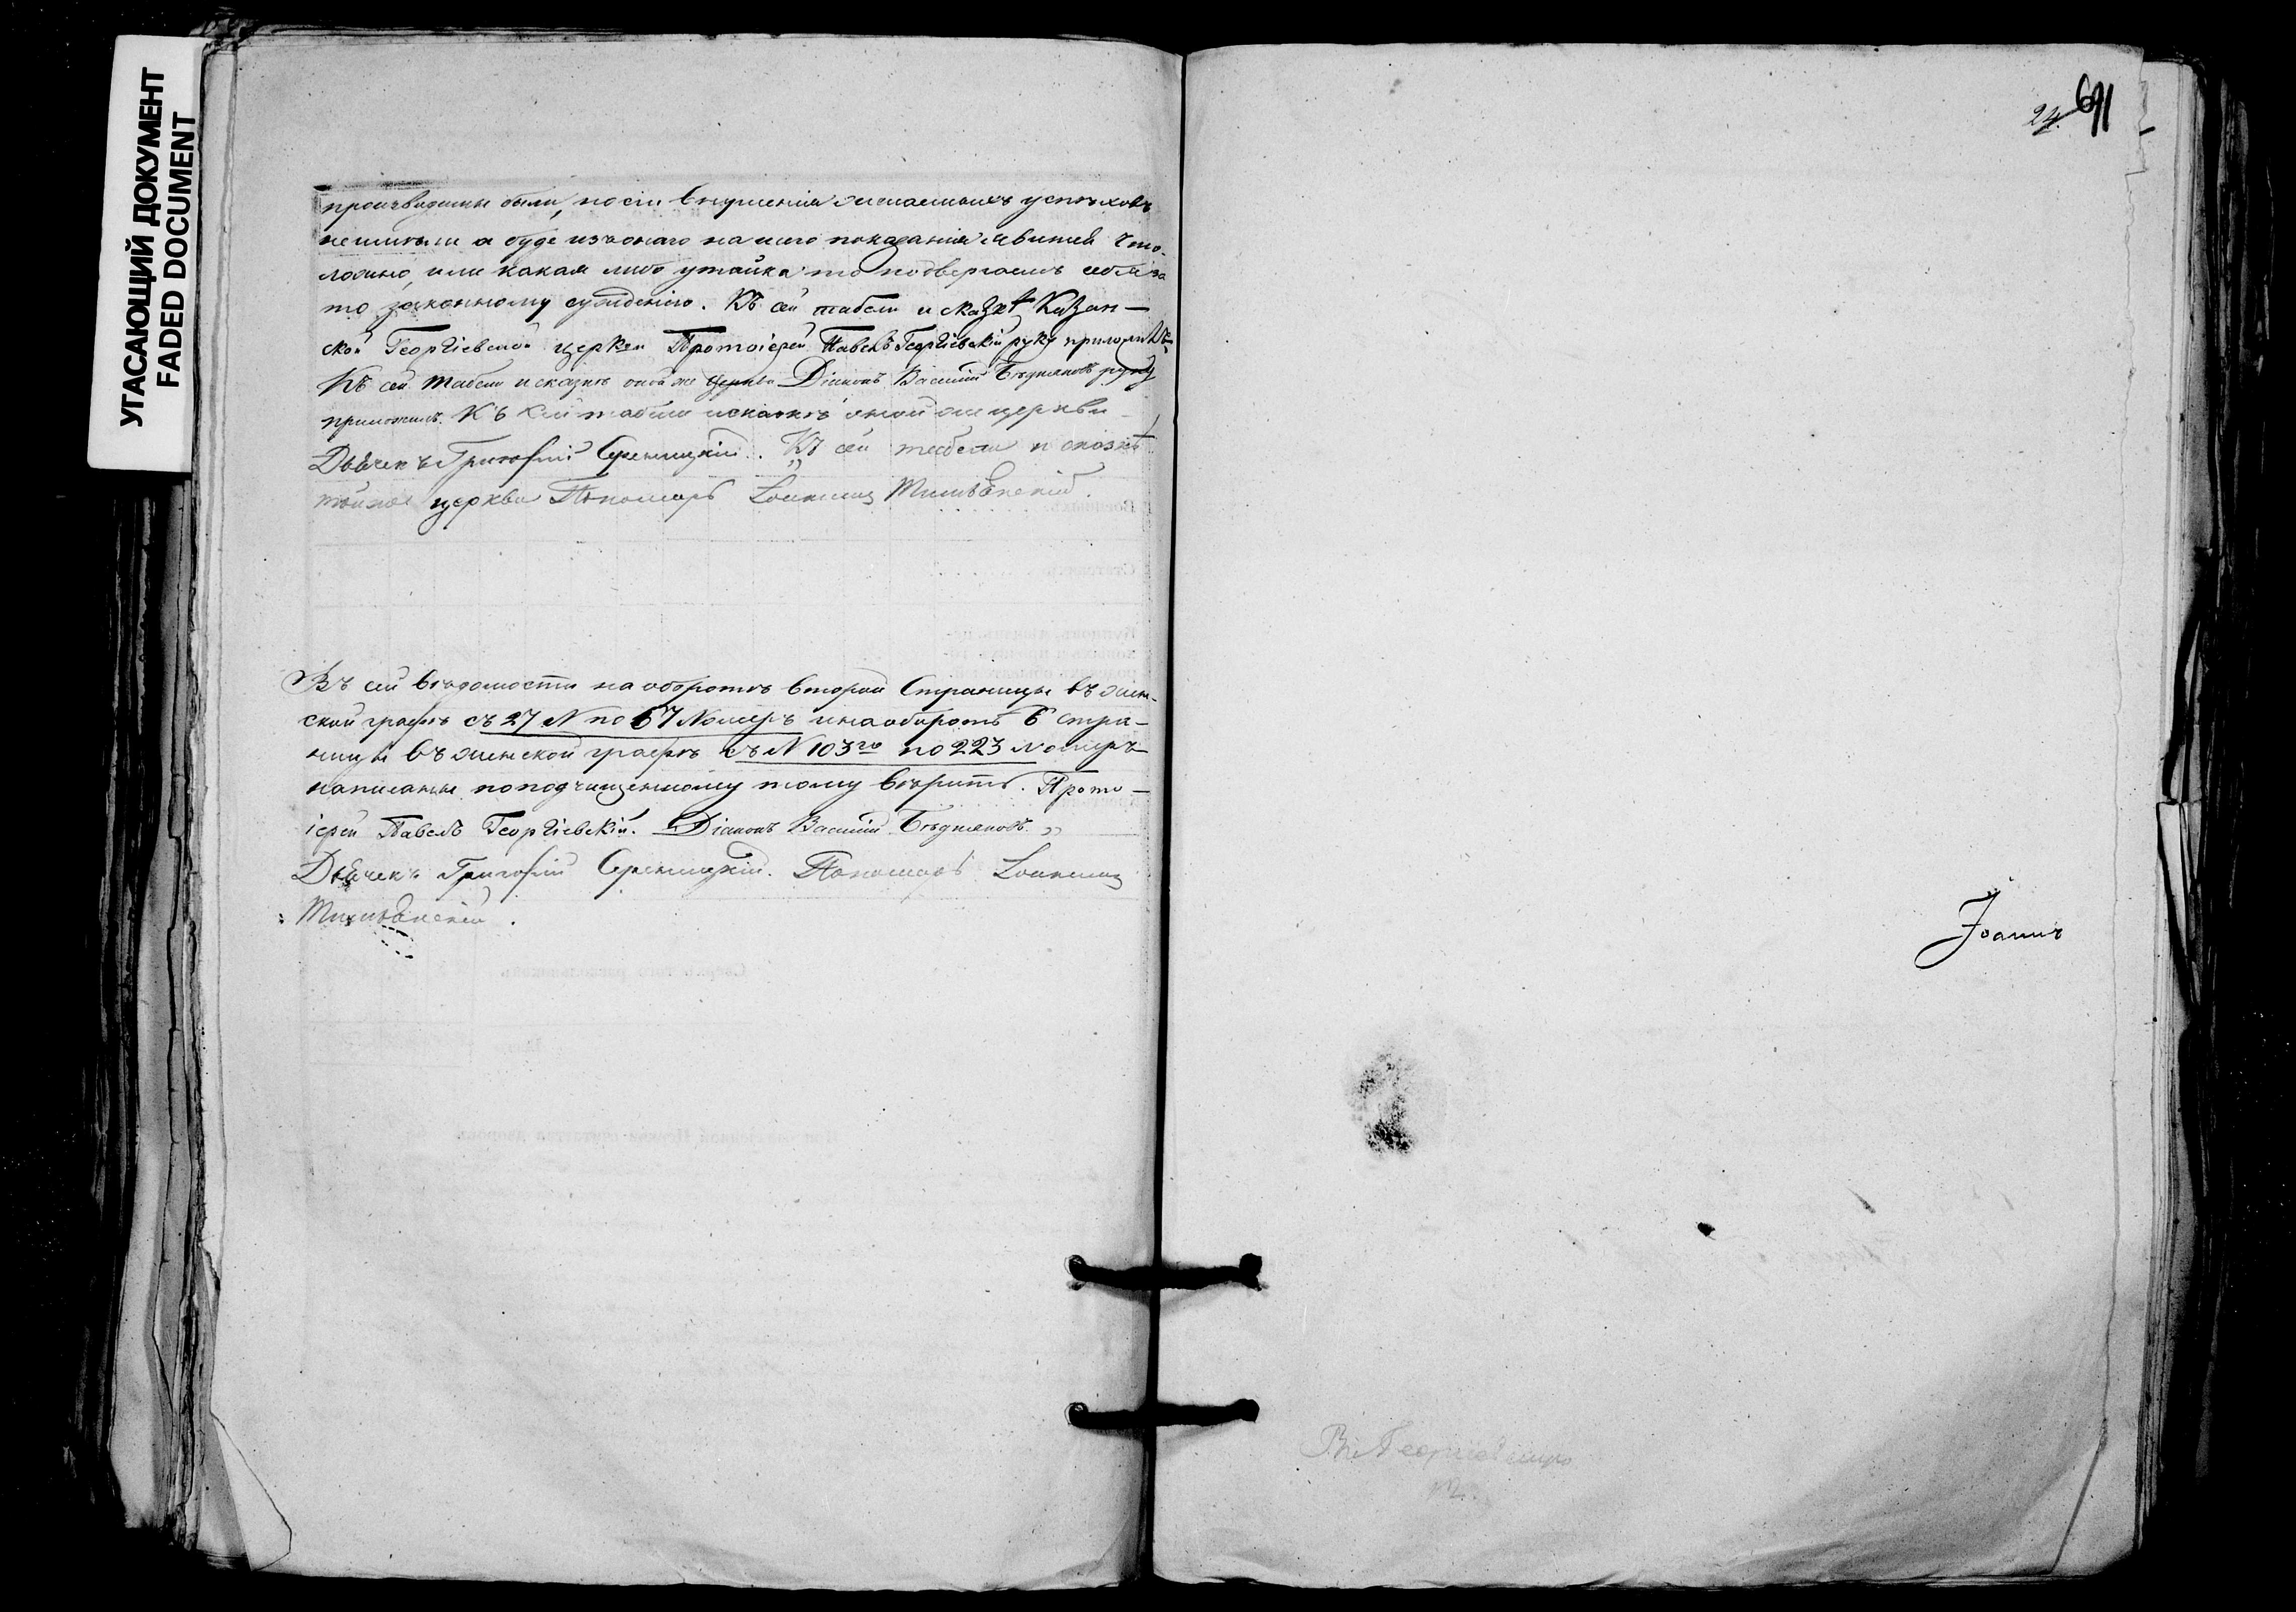 УГАСАЮЩИЙ ДОКУМЕНТ
FADED DOCUMENT
произвидимы были, но сіи внушенія желаемыхъ успѣховъ
не имѣли а буде изъ онаго нашего показанія явится что
ложно, или какая либо утайка то подвергаемъ себя за
то законному сужденію. Къ сей табели и сказкѣ Казан–
ской Георгіевской церкви Протоіерей Павелъ Георгіевскій руку приложилъ.
Къ сей табели и сказкѣ оной же церкви Діаконъ Василій руку
приложилъ. Къ сей табели и сказкѣ оной же церкви –
Дьячекъ Григорій . Къ сей табели и сказкѣ
той же церкви Пономарь .
Въ сей вѣдомости на оборотѣ второй Страницы въ жен–
ской графѣ съ 27 N по 67 Номеръ и на оборотѣ 6 стра–
ницы въ женской графѣ съ N 103го по 223 номеръ –
написаны по подчищенному тому вѣрить. Прото–
іерей Павелъ Георгіевскій. Діаконъ Василій
Дьячекъ Григорій . Пономарь
24. 691
Іоаннъ